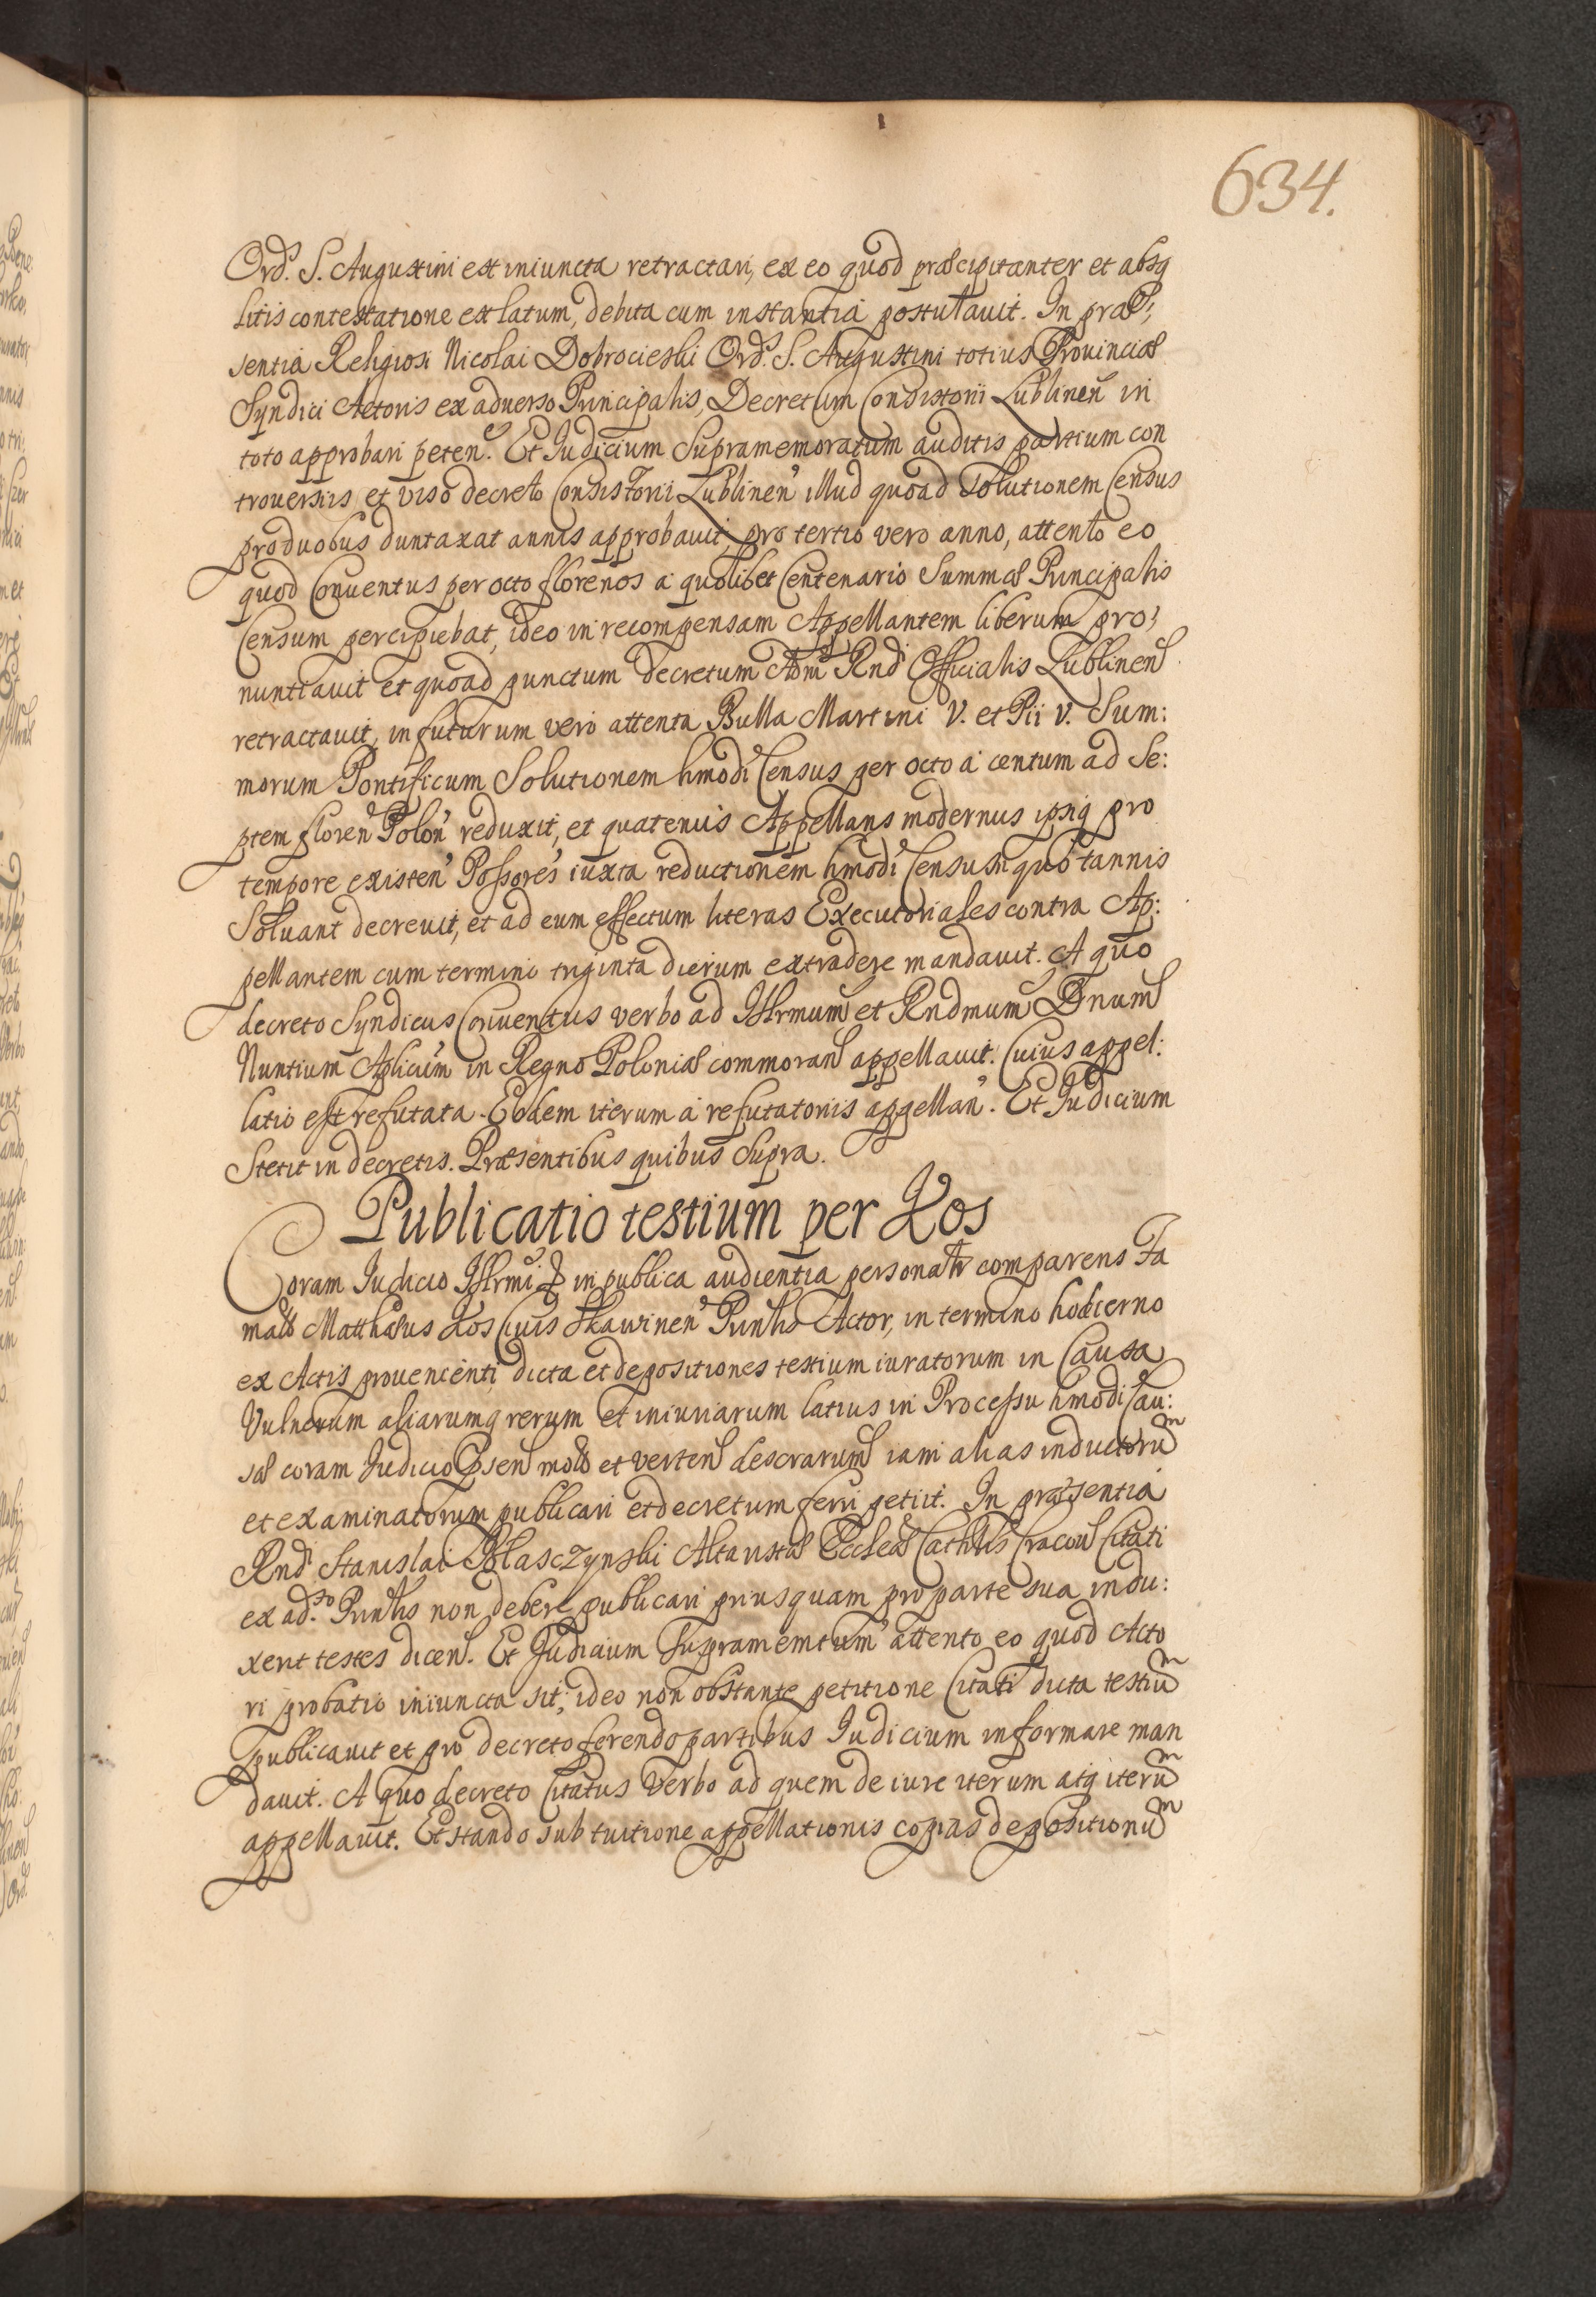 634.
Ord. S. Augustini est iniuncta retractari, ex eo quod præcipitanter et absq
litis contestatione est latum, debita cum instantia postulauit. In præ;
sentia Religiosi Nicolai Dobrocieski Ord. S. Augustini totius Prouinciæ
Syndici Actoris ex aduerso Principalis, Decretum Consistorii Lublinen in
toto approbari peten. Et Iudicium Supramemoratum auditis partium con
trouersiis et viso decreto Consistorii Lublinen illud quoad Solutionem Census
pro duobus duntaxat annis approbauit, pro tertio vero anno, attento eo
quod Conuentus per octo florenos a quolibet Centenario Summæ Principalis
Censum percipiebat, ideo in recompensam Appellantem liberum pro;
nuntiauit et quoad punctum decretum Adm Rndi Officialis Lublinen
retractauit, in futurum vero attenta Bulla Martini V. et Pii V. Sum:
morum Pontificum Solutionem hmodi Census per octo a centum ad Se:
ptem floren Polon reduxit, et quatenus Appellans modernus ipsiq pro
tempore existen Possores iuxta reductionem hmodi Censum quotannis
Soluant decreuit, et ad eum effectum literas Executoriales contra Ap:
pellantem cum termino triginta dierum extradere mandauit. A quo
decreto Syndicus Conuentus verbo ad Illrmum et Rndmum Dnum
Nuntium Aplicum in Regno Poloniæ commoran appellauit. Cuius appel:
latio est refutata. Eodem iterum a refutatoriis appellan. Et Iudicium
Stetit in decretis. Præsentibus quibus Supra.
Publicatio testium per Kos
Coram Iudicio Illrmi & in publica audientia personatr comparens Fa
matus Matthæus Kos Ciuis Skawinen Prinlis Actor, in termino hodierno
ex Actis proueniente dicta et depositiones testium iuratorum in Causa
Vulnerum aliarumq rerum et iniuriarum latius in Processu hmodi Cau:
sæ coram Iudicio Psen moto et verten descrarum iam alias inductoru
et examinatorum publicari et decretum ferri petiit. In præsentia
Rndi Stanislai Polasczynski Altaristæ Eccleæ Cathlis Cracou Citati
ex ad.so Prinlis non debere publicari priusquam pro parte sua indu:
xerit testes dicen. Et Iudicium Supramemtum attento eo quod Acto
ri probatio iniuncta sit, ideo non obstante petitione Citati dicta testiu
publicauit et pro decreto ferendo partibus Iudicium informare man
dauit. A quo decreto Citatus Verbo ad quem de iure iterum atq iteru
appellauit. Et stando sub tuitione appellationis copias depositionu